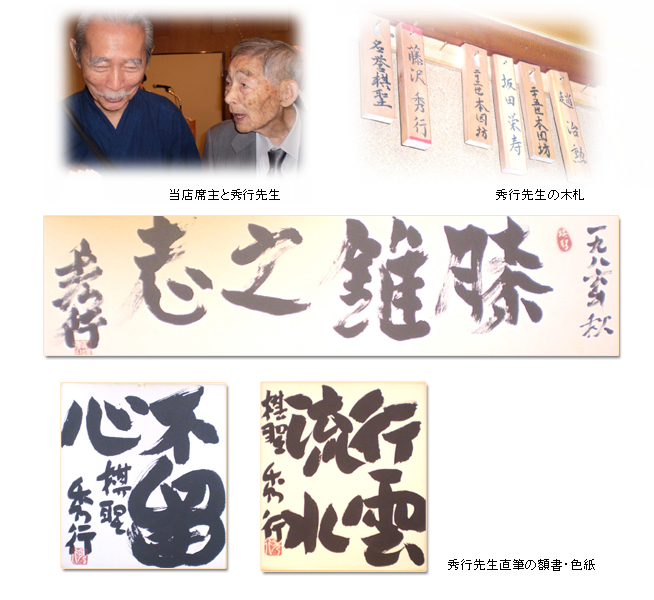 当店席主と秀行先生
名誉棋聖
藤沢 秀行
本因坊
坂田 栄寿
二十五世本因坊
趙 治勲
秀行先生の木札
之志
秀行
不留
心
棋聖
秀行
行雲
流水
棋聖
秀行
秀行先生直筆の額書・色紙